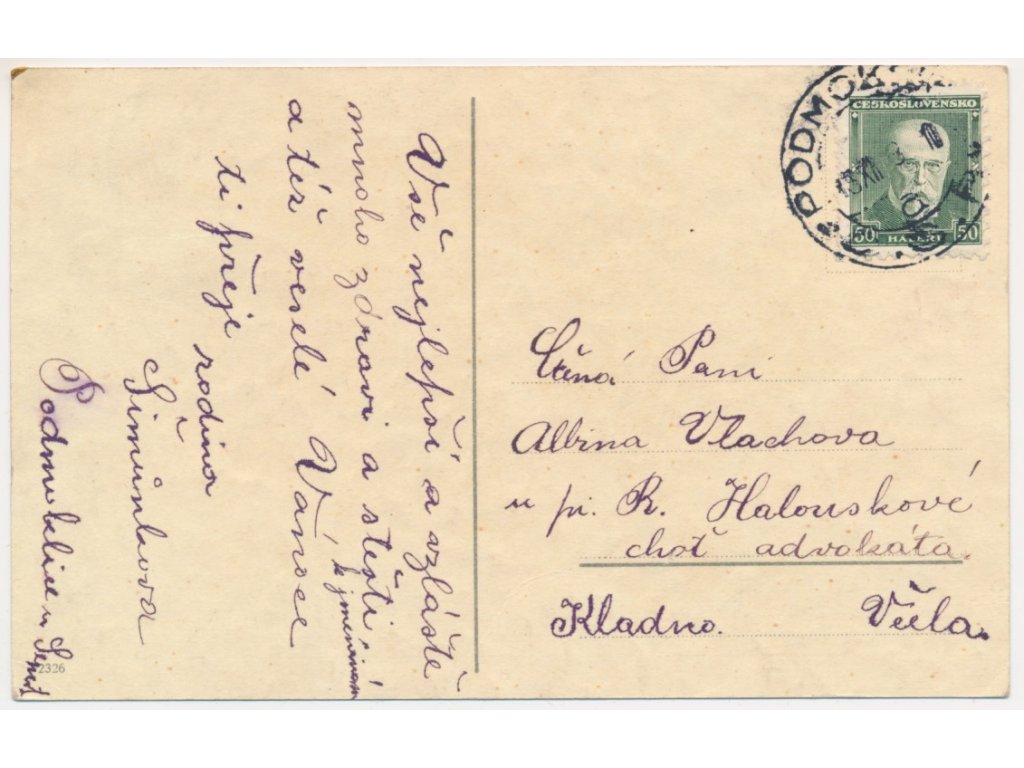 Vše nejlepší a vzláště
mnoho zdraví a štěstí
k jmeninám
a též veselé Vánoce
ti přeje rodina
Šimůnkova
2326
PODMOK
13 XII 3
ČESKOSLOVENSKO
50 HALÉŘŮ 50
Ctěná Paní
Albina Vlachova
u pí. R. Halouskové
choť advokáta.
Kladno. Villa.